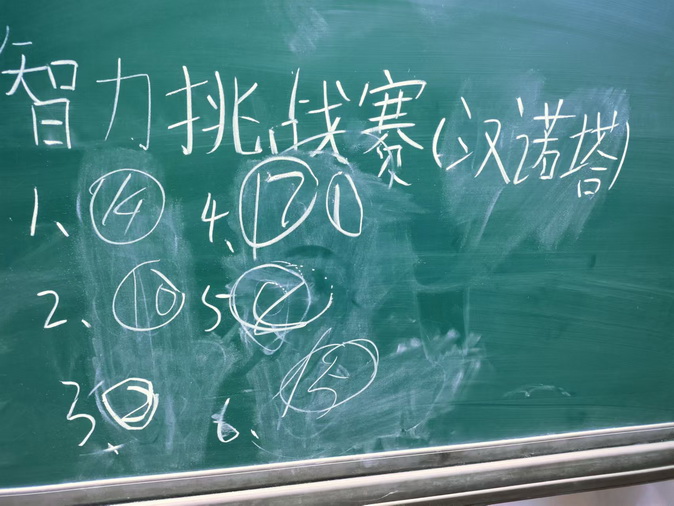 智力挑战赛(汉诺塔)
1、⑭ 4、⑰①
2、⑩ 5②
3.② 6、⑮